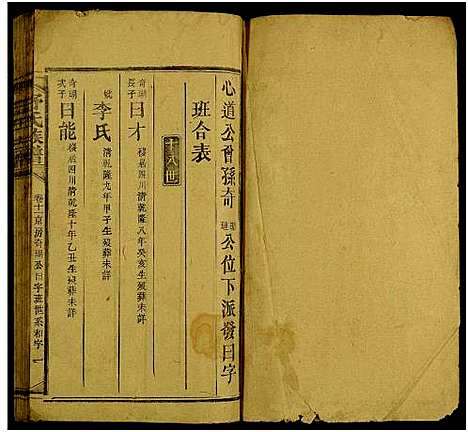 心道公曾孫奇瑚璉公位下派發日字
班合表
十八世
奇瑚長子 日才 移居四川清乾隆八年癸亥生歿葬未詳
妣 李氏 清乾隆九年甲子生歿葬未詳
奇瑚次子 日能 移居四川清乾隆十年乙丑生歿葬未詳
氏族譜
卷十二 房奇瑚公日字班世系和字 一